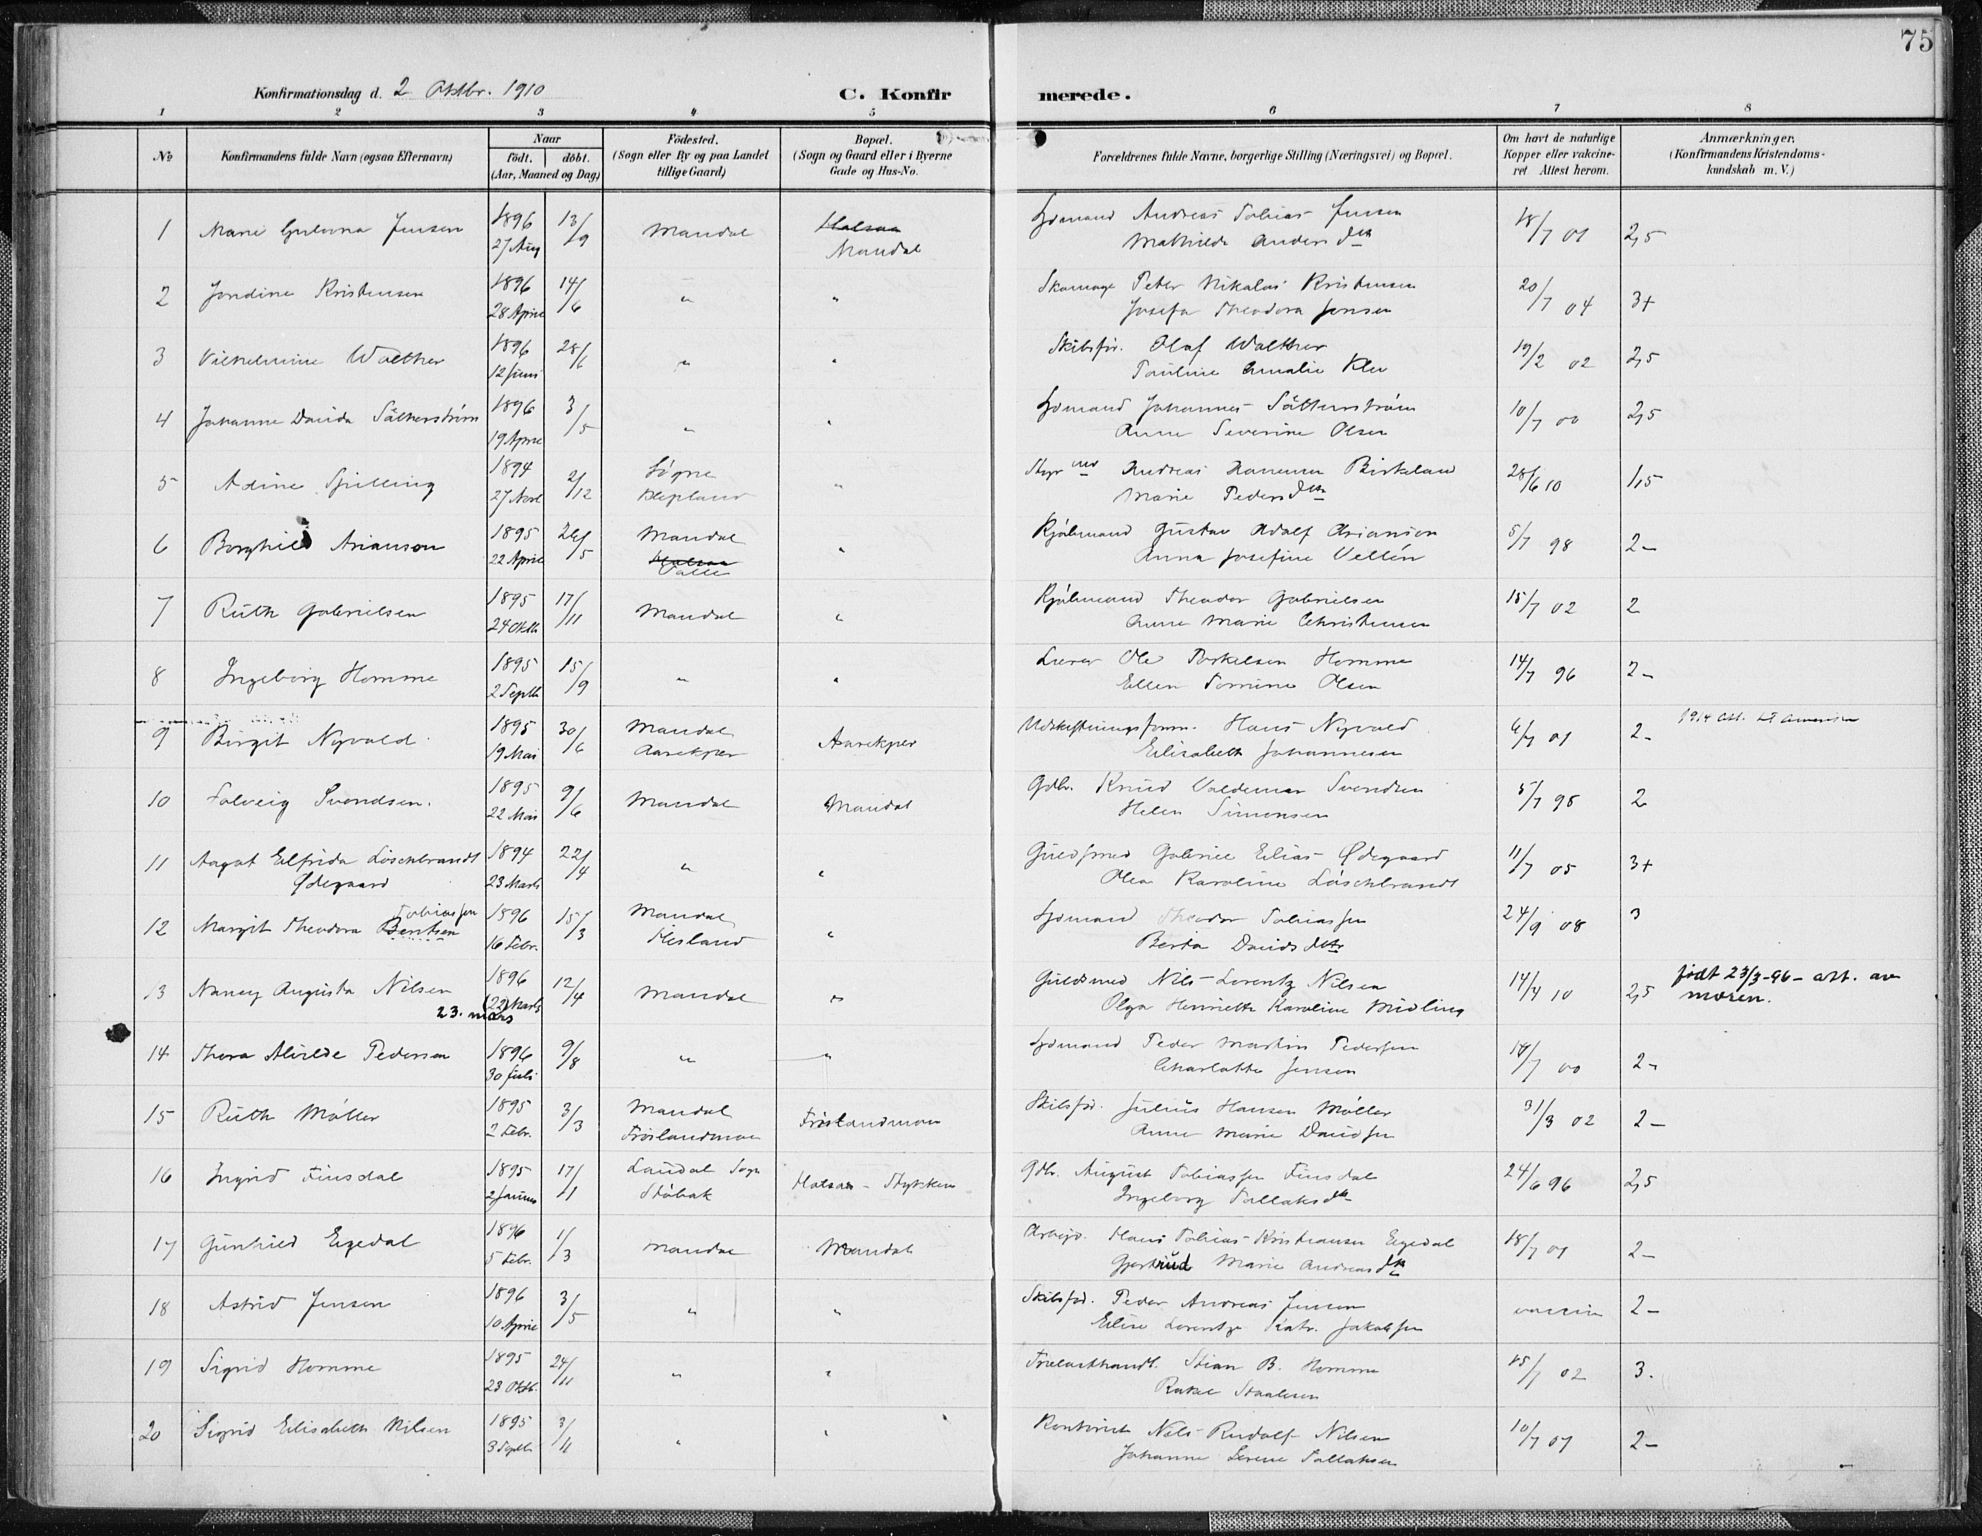 75
Konfirmationsdag d. 2 Oktbr. 1910
C. Konfir merede.
1 2 3 4 5 6 7 8
No Konfirmandens fulde Navn (ogsaa Efternavn) Naar födt. döbt. (Aar, Maaned og Dag) Födested. (Sogn eller By og paa Landet tillige Gaard) Bopæl. (Sogn og Gaard eller i Byerne Gade og Hus-No. Forældrenes fulde Navne, borgerlige Stilling (Næringsvei) og Bopæl. Om havt de naturlige Kopper eller vakcineret Attest herom. Anmærkninger. (Konfirmandens Kristendomskundskab m. V.)
1 Marie Jensen 1896 13/9 Mandal Halsaa Sjømand Andreas Tobias Jensen 18/7 01 2,5
27 Aug Mandal Mathilde Anders dtr
2 Jondine Kristensen 1896 14/6 " " Skomager Peter Nikolai Kristensen 20/7 04 3+
28 April Josefa Theodora Jensen
3 Vilhelmine Walther 1896 28/6 " " Skibsfør. Olaf Walther 19/2 02 2,5
12 Juni Pauline Amalie
4 Johanne Davida Sätherström 1896 3/5 " " Sjømand Johannes Sätherström 10/7 00 2,5
19 April Anne Severine Olsen
5 Adine Spilling 1894 2/12 Søgne " Andreas Birkeland 28/6 10 1,5
27 Novl Klepland Marie Peders dtr
6 Borghild Arianson 1895 26/5 Mandal " Kjøbmand Gustav Adolf Arianson 5/7 98 2-
22 April Halsaa Valle Anna Josefine Vellén
7 Ruth Gabrielsen 1895 17/11 Mandal " Kjøbmand Theodor Gabrielsen 15/7 02 2
24 Oktb Anne Marie Christensen
8 Ingeborg Homme 1895 15/9 " " Lærer Ole Torkelsen Homme 14/7 96 2-
2 Septb Ellen Tomine Olsen
9 Birgit Nyvold 1895 30/6 Mandal Aarekjær Udskiftningsform. Hans Nyvold 6/7 01 2- 1914 att. til Amerika
19 Mai Aarekjær Elisabeth Johannesen
10 Solveig Svendsen. 1895 9/6 Mandal Mandal Gdbr. Knud Valdemar Svendsen 5/7 98 2
22 Mai Helen Simonsen
11 Aagot Elfrida Löschbrandt 1894 22/4 " " Guldsmed Gabriel Elias Ødegaard 11/7 05 3+
Ødegaard 23 Marts Olea Karoline Löschbrandt
12 Margit Theodora Bentsen Tobiassen 1896 15/3 Mandal " Sjømand Theodor Tobiassen 24/9 08 3
16 Febr. Hesland Berta Davids dtr
13 Nancy Augusta Nilsen 1896 12/4 Mandal " Guldsmed Nils Lorentz Nilsen 14/4 10 2,5 født 23/3-96 - att. av
(22) Marts 23. mars Olga Henriette Karoline Midling moren.
14 Thora Alvilde Pedersen 1896 9/8 " " Sjømand Peder Martin Pedersen 18/7 00 2-
30 Juli Charlotte Jensen
15 Ruth Møller 1895 3/3 Mandal Frøislandmoen Skibsfør. Julius Hansen Møller 31/3 02 2-
2 Febr. Frøislandmoen Anne Marie Davidsen
16 Ingrid Finsdal 1895 17/1 Laudal Sogn Halsaa - Stykken Gdbr. August Tobiassen Finsdal 24/6 96 2,5
2 Januar Støbak Ingeborg Tallaks dtr
17 Gunhild Egedal 1896 1/3 Mandal Mandal Arbejd. Hans Tobias Kristiansen Egedal 18/7 01 2-
5 Febr. Gjertrud Marie Andreas dtr
18 Astrid Jensen 1896 3/5 " " Skibsfør. Peder Andreas Jensen 2-
10 April Elise Lorentze Katr. Jakobsen
19 Sigrid Homme 1895 24/11 " " Trælasthandl. Stian B. Homme 15/7 02 3.
23 Oktb. Rakel Staalesen
20 Sigrid Elisabeth Nilsen 1895 3/11 " " Kontorist Nils Rudolf Nilsen 10/7 07 2-
3 Septb. Johanne Serene Tallaksen